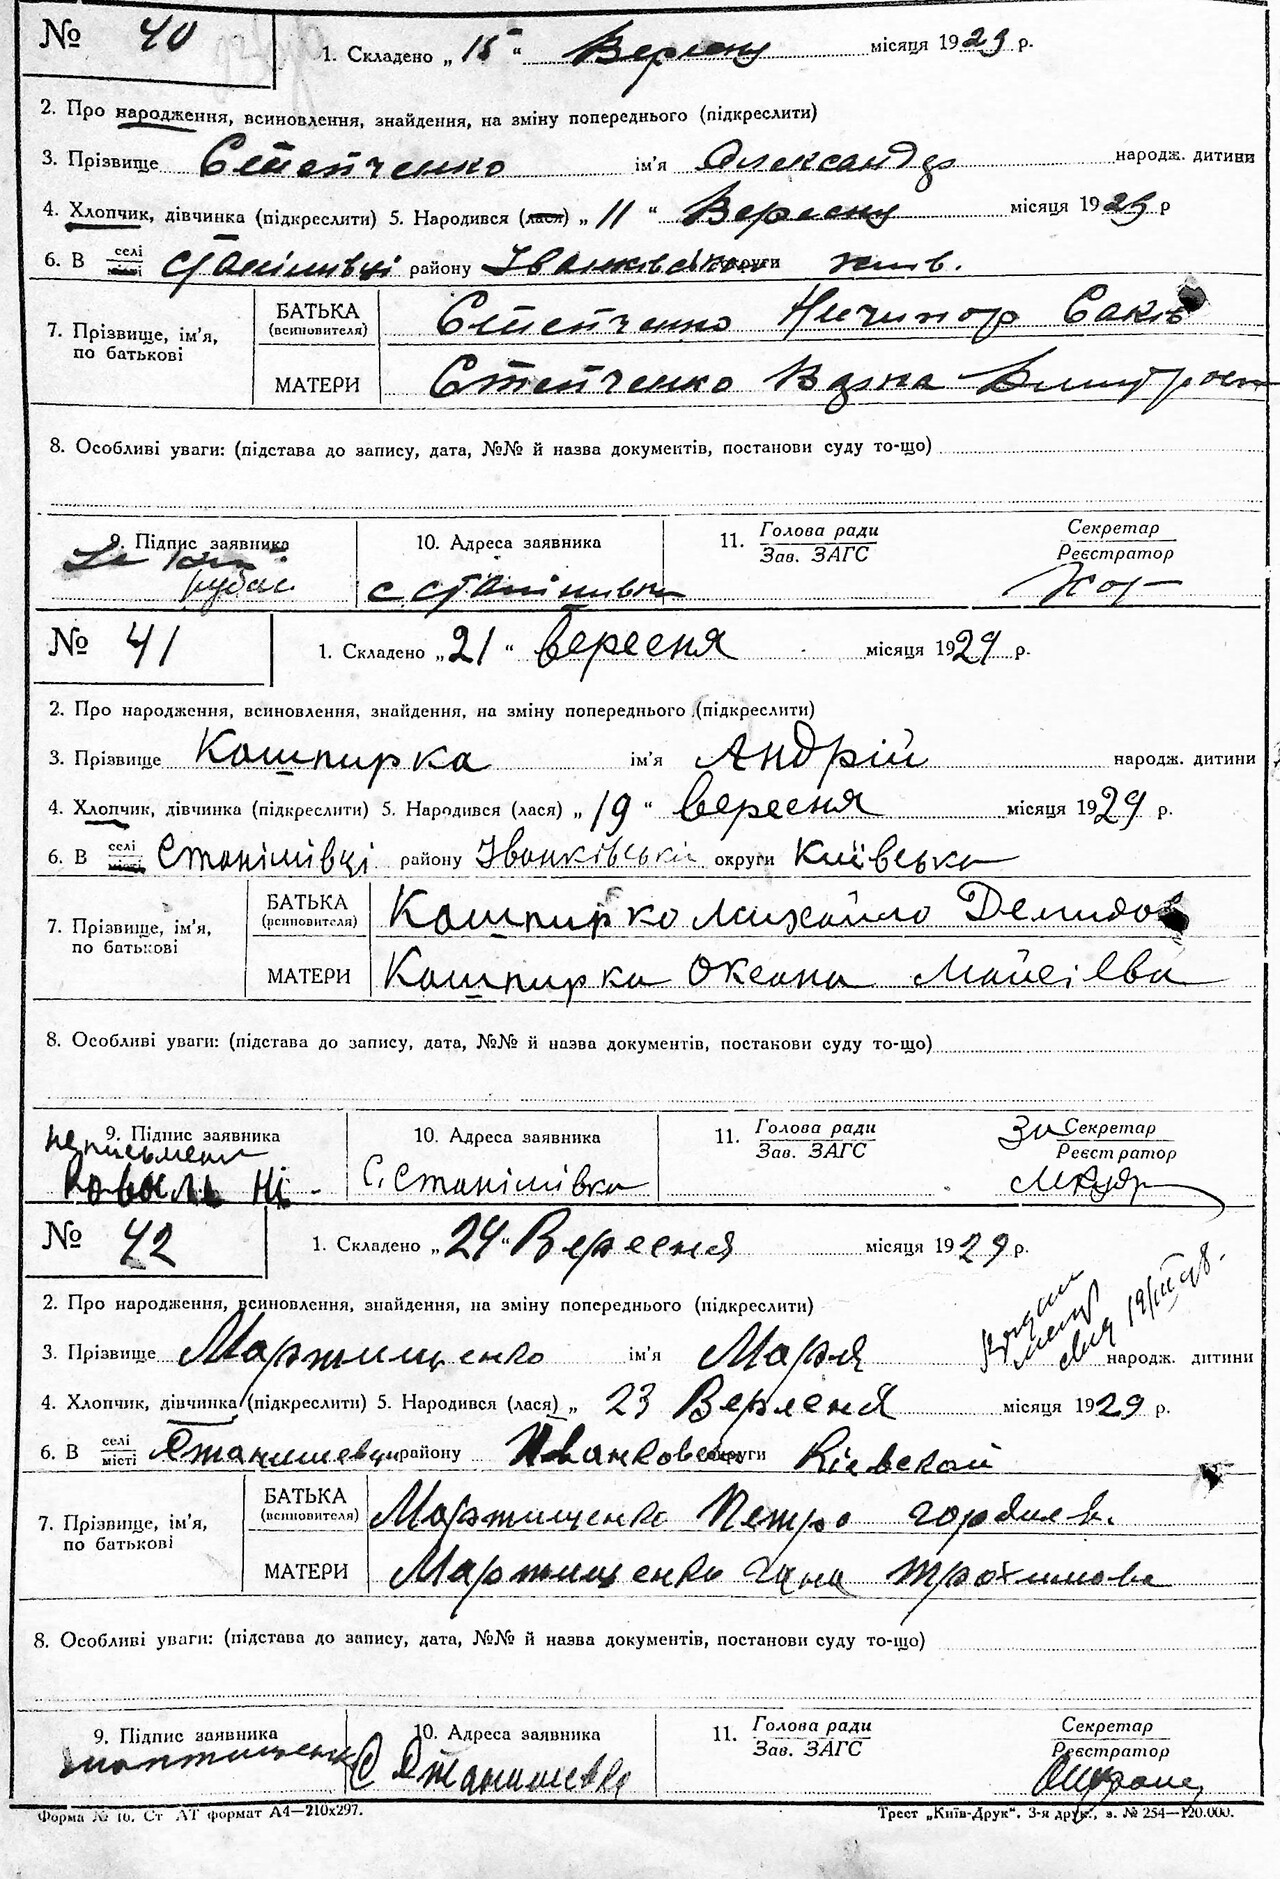 № 40
1. Складено „ 15 “ Вересня місяця 1929 р.
2. Про народження, всиновлення, знайдення, на зміну попереднього (підкреслити)
3. Прізвище Степченко ім'я Александр народж. дитини
4. Хлопчик, дівчинка (підкреслити) 5. Народився (лася) „ 11 “ Вересня місяця 1929 р
6. В селі місті Станішивці району Іванківська округи київ.
7. Прізвище, ім'я, по батькові
БАТЬКА (всиновителя) Степченко Ничипор Саків
МАТЕРИ Степченко
8. Особливі уваги: (підстава до запису, дата, №№ й назва документів, постанови суду то-що)
9. Підпис заявника 10. Адреса заявника 11. Голова ради Секретар
Зав. ЗАГС Реєстратор
с. Станішивка
№ 41
1. Складено „ 21 “ вересня місяця 1929 р.
2. Про народження, всиновлення, знайдення, на зміну попереднього (підкреслити)
3. Прізвище Кашпирка ім'я Андрій народж. дитини
4. Хлопчик, дівчинка (підкреслити) 5. Народився (лася) „ 19 “ вересня місяця 1929 р.
6. В селі місті Станішівці району Іванківській округи Київська
7. Прізвище, ім'я, по батькові
БАТЬКА (всиновителя) Кашпирко Михайло Демидов
МАТЕРИ Кашпирка Оксана Мойсієва
8. Особливі уваги: (підстава до запису, дата, №№ й назва документів, постакови суду то-що)
9. Підпис заявника 10. Адреса заявника 11. Голова ради За Секретар
неписьмені Зав. ЗАГС Реєстратор
с. Станішівка
№ 42
1. Складено „ 24 “ Вересня місяця 1929 р.
2. Про народження, всиновлення, знайдення, на зміну попереднього (підкреслити)
3. Прізвище Мартищенко ім'я Марія народж. дитини
4. Хлопчик, дівчинка (підкреслити) 5. Народився (лася) „ 23 Верлсня місяця 1929 р.
6. В селі місті Станишевци району Иванковской округи Кіевской
7. Прізвище, ім'я, по батькові
БАТЬКА (всиновителя) Мартищенко Петро гордиев.
МАТЕРИ Мартищенко гана трохимова
8. Особливі уваги: (підстава до запису, дата, №№ й назва документів, постанови суду то-що)
9. Підпис заявника 10. Адреса заявника 11. Голова ради Секретар
Зав. ЗАГС Реєстратор
мартищенк С Станишевка
Форма № 10. Ст АТ формат А4—210х297. Трест „Київ-Друк“. 3-я друк., з. № 254—120.000.